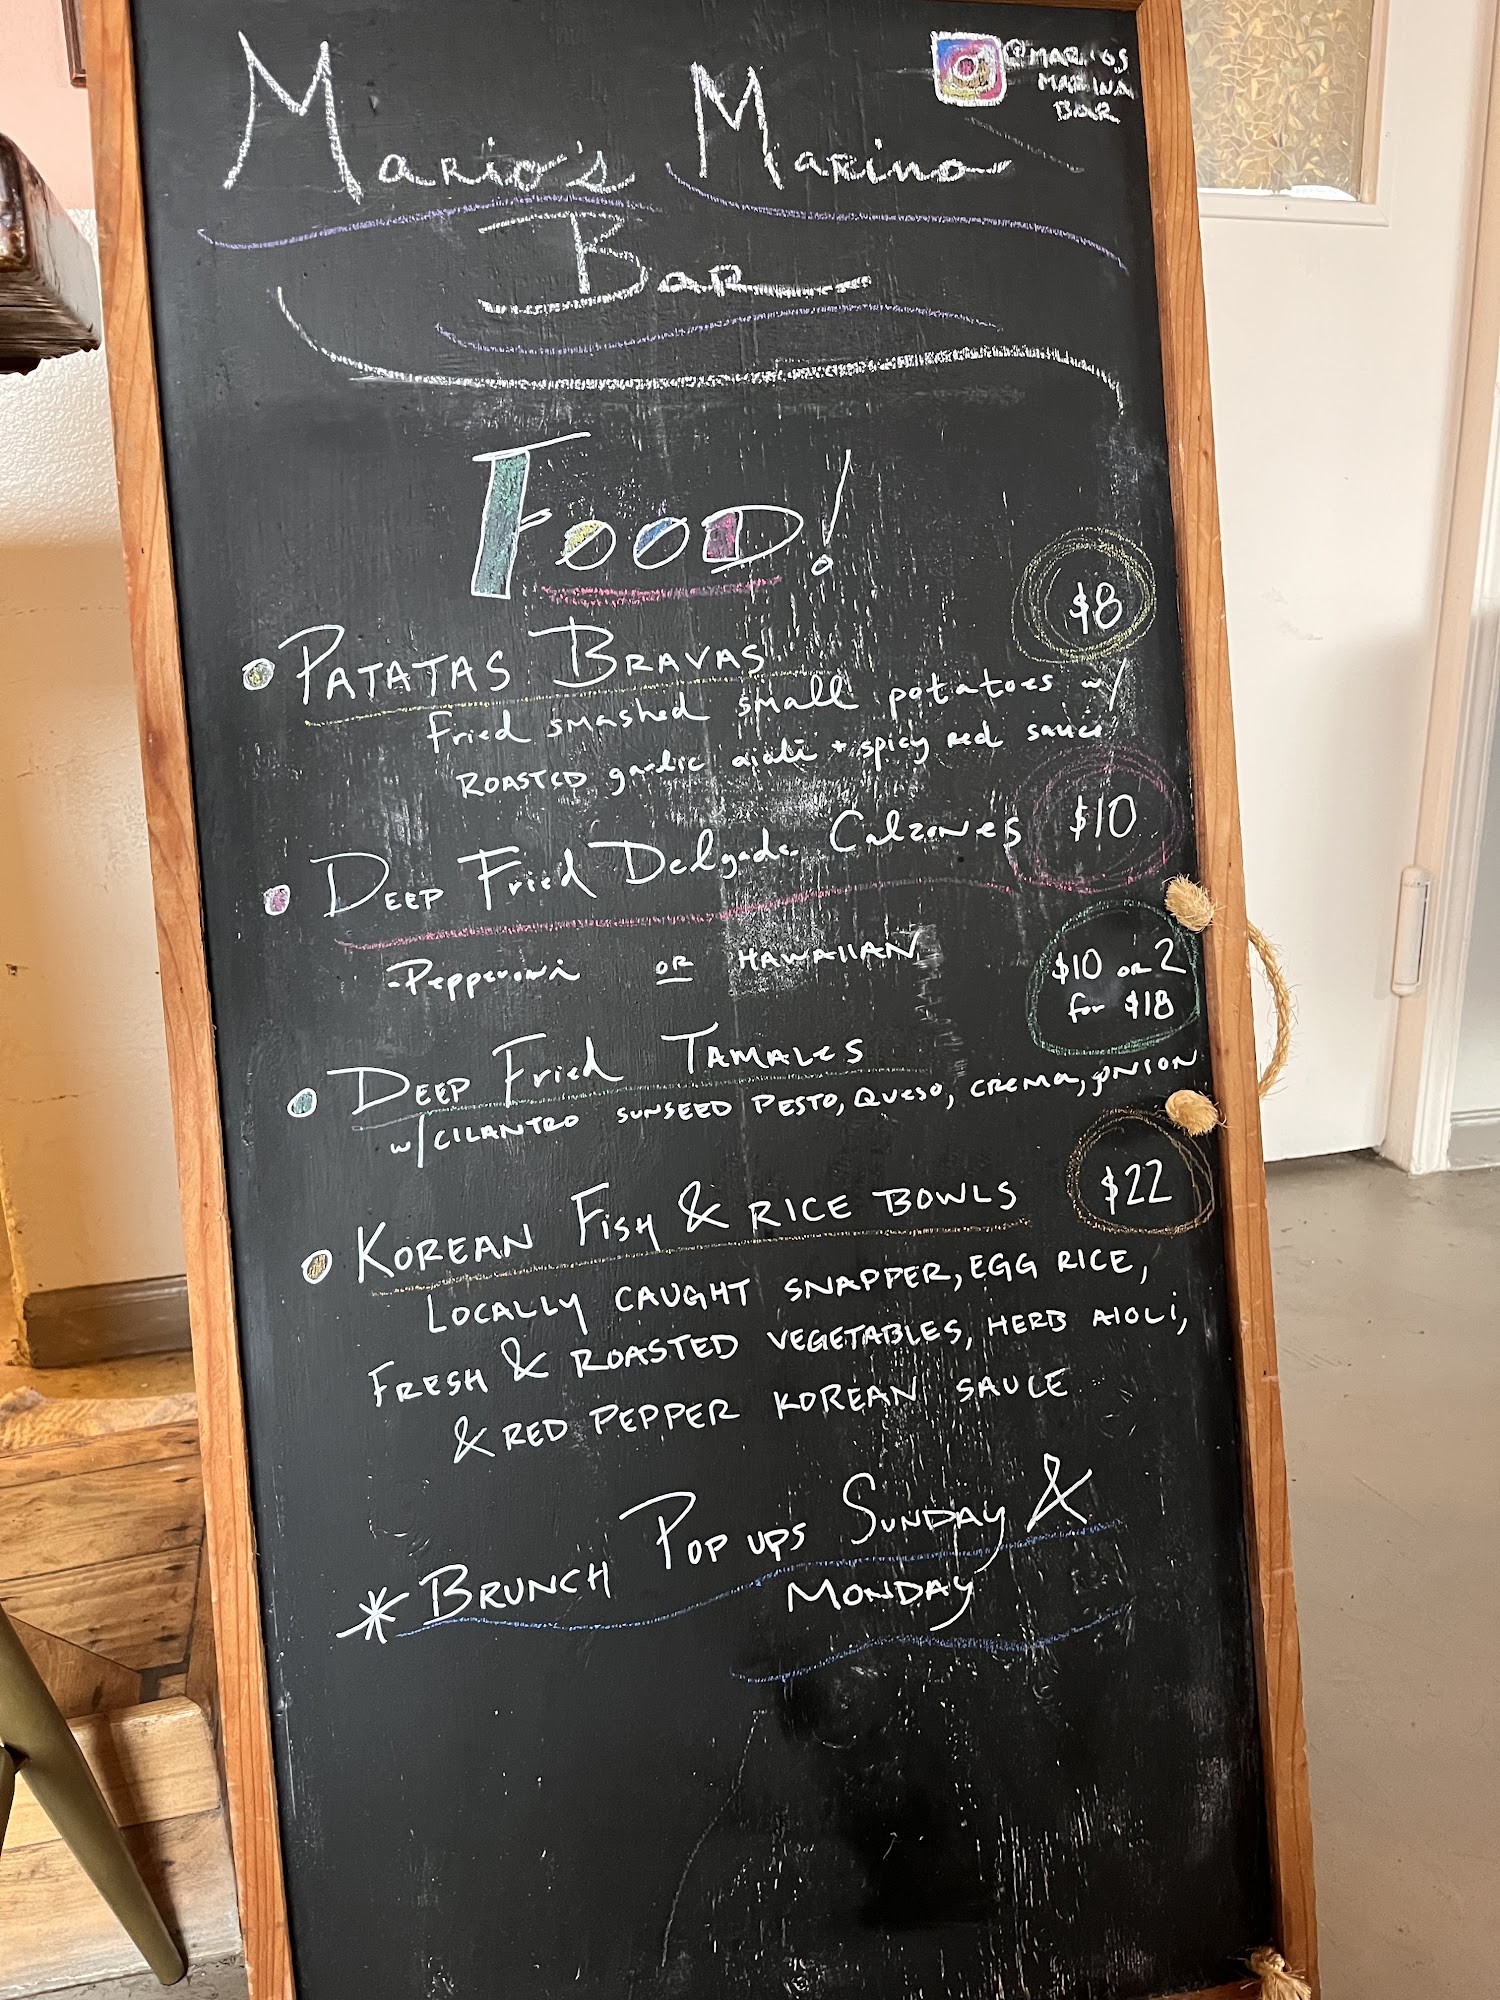 Mario's Marina
Bar
@MARIOS
MARINA
BAR
FOOD!
PATATAS BRAVAS $8
fried smashed small potatoes w/
ROASTED garlic aioli + spicy red sauce
DEEP Fried Delgada Calzones $10
-Pepperoni OR HAWAIIAN
$10 or 2
for $18
DEEP Fried TAMALES
w/CILANTRO SUNSEED PESTO, QUESO, CREMA, ONION
KOREAN FISH & RICE BOWLS $22
LOCALLY CAUGHT SNAPPER, EGG RICE,
FRESH & ROASTED VEGETABLES, HERB AIOLI,
& RED PEPPER KOREAN SAUCE
* BRUNCH POP UPS SUNDAY &
MONDAY